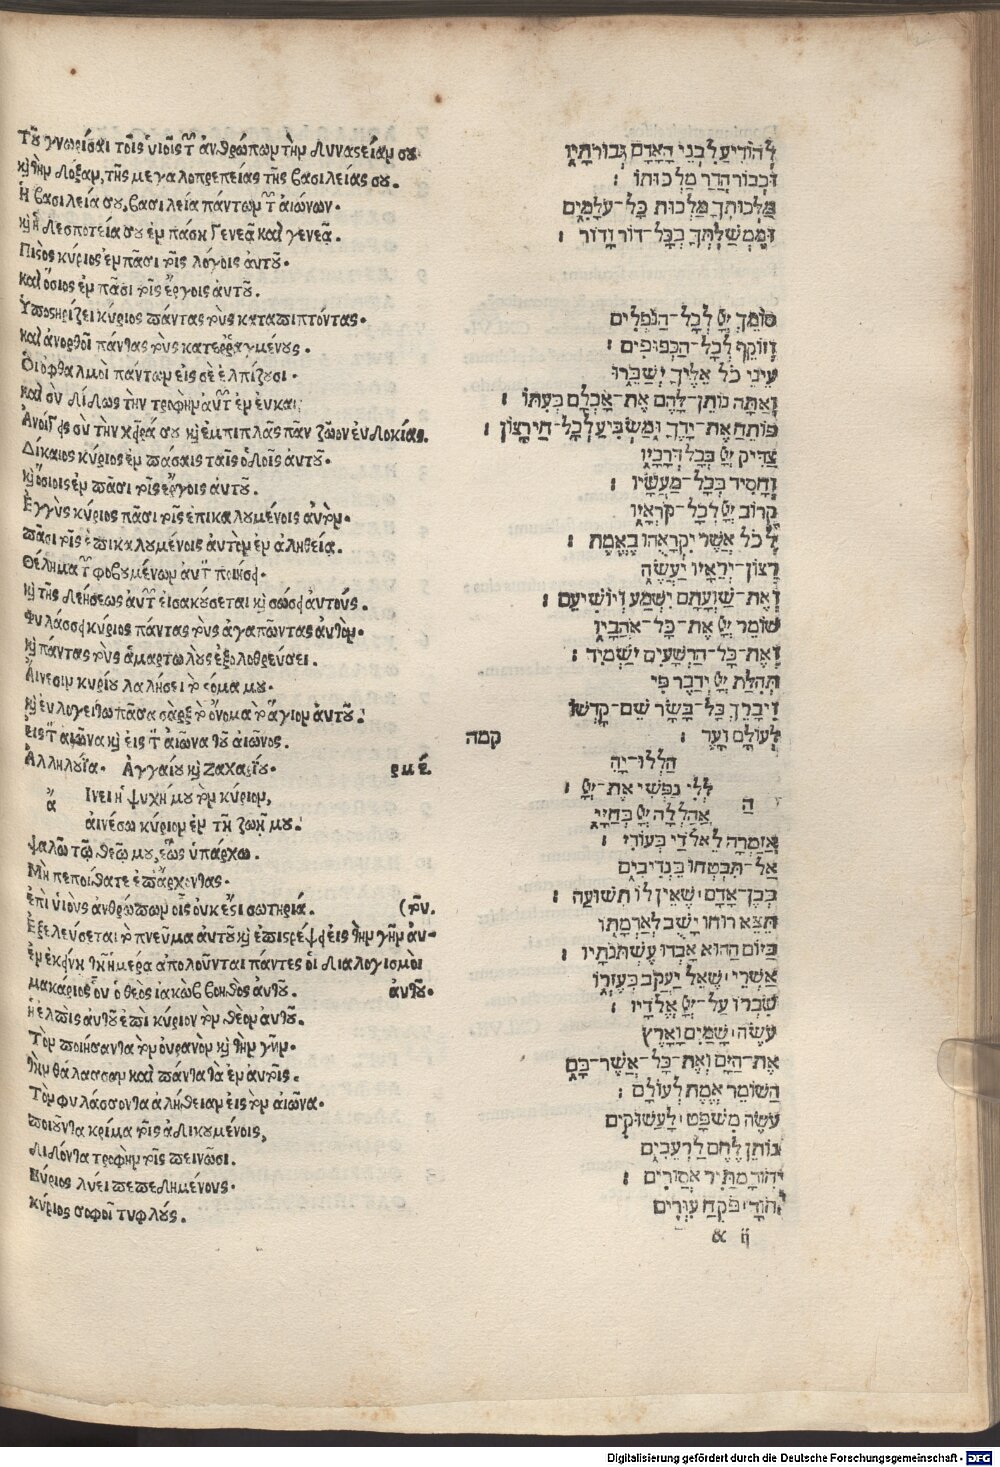 Τοῦ γνωρίσαι τοῖς υἱοῖς τῶν ἀνθρώπων τὴν δυναστείαν σου
καὶ τὴν δόξαν, τῆς μεγαλοπρεπείας τῆς βασιλείας σου.
Ἡ βασιλεία σου, βασιλεία πάντων τῶν αἰώνων.
καὶ ἡ δεσποτεία σου ἐν πάσῃ γενεᾷ καὶ γενεᾷ.
Πιστὸς κύριος ἐν πᾶσι τοῖς λόγοις αὐτοῦ.
καὶ ὅσιος ἐν πᾶσι τοῖς ἔργοις αὐτοῦ.
Ὑποστηρίζει κύριος πάντας τοὺς καταπίπτοντας.
καὶ ἀνορθοῖ πάντας τοὺς κατερραγμένους.
Οἱ ὀφθαλμοὶ πάντων εἰς σὲ ἐλπίζουσι.
καὶ σὺ δίδως τὴν τροφὴν αὐτῶν ἐν εὐκαι
Ἀνοίγεις σὺ τὴν χεῖρά σου καὶ ἐμπιπλᾷς πᾶν ζῶον εὐδοκίας.
Δίκαιος κύριος ἐν πάσαις ταῖς ὁδοῖς αὐτοῦ.
καὶ ὅσιος ἐν πᾶσι τοῖς ἔργοις αὐτοῦ.
Ἐγγὺς κύριος πᾶσι τοῖς ἐπικαλουμένοις αὐτόν.
πᾶσι τοῖς ἐπικαλουμένοις αὐτὸν ἐν ἀληθείᾳ.
Θέλημα τῶν φοβουμένων αὐτὸν ποιήσει.
καὶ τῆς δεήσεως αὐτῶν εἰσακούσεται καὶ σώσει αὐτούς.
Φυλάσσει κύριος πάντας τοὺς ἀγαπῶντας αὐτόν.
καὶ πάντας τοὺς ἁμαρτωλοὺς ἐξολοθρεύσει.
Αἴνεσιν κυρίου λαλήσει τὸ στόμα μου.
καὶ εὐλογείτω πᾶσα σὰρξ τὸ ὄνομα τὸ ἅγιον αὐτοῦ.
εἰς τὸν αἰῶνα καὶ εἰς τὸν αἰῶνα τοῦ αἰῶνος.
Ἀλληλούϊα. Ἀγγαίου καὶ Ζαχαρίου. ρμέ.
ἄ Ινει ἡ ψυχή μου τὸν κύριον,
αἰνέσω κύριον ἐν τῇ ζωῇ μου.
ψαλῶ τῷ θεῷ μου, ἕως ὑπάρχω.
Μὴ πεποίθατε ἐπ' ἄρχοντας.
ἐπὶ υἱοὺς ἀνθρώπων οἷς οὐκ ἔστι σωτηρία. (τοῦ.
Ἐξελεύσεται τὸ πνεῦμα αὐτοῦ καὶ ἐπιστρέψει εἰς τὴν γῆν αὐ-
ἐν ἐκείνῃ τῇ ἡμέρᾳ ἀπολοῦνται πάντες οἱ διαλογισμοὶ
μακάριος οὗ ὁ θεὸς ἰακὼβ βοηθὸς αὐτοῦ. αὐτῶν.
ἡ ἐλπὶς αὐτοῦ ἐπὶ κύριον τὸν θεὸν αὐτοῦ.
Τὸν ποιήσαντα τὸν οὐρανὸν καὶ τὴν γῆν.
τὴν θάλασσαν καὶ πάντα τὰ ἐν αὐτοῖς.
Τὸν φυλάσσοντα ἀλήθειαν εἰς τὸν αἰῶνα.
ποιοῦντα κρίμα τοῖς ἀδικουμένοις,
διδόντα τροφὴν τοῖς πεινῶσι.
Κύριος λύει πεπεδημένους.
κύριος σοφοῖ τυφλούς.
לְהוֹדִיעַ לִבְנֵי הָאָדָם גְּבוּרֹתָיו
וּכְבוֹד הֲדַר מַלְכוּתוֹ :
מַלְכוּתְךָ מַלְכוּת כָּל־עֹלָמִים
וּמֶמְשַׁלְתְּךָ בְּכָל־דּוֹר וָדוֹר :
סוֹמֵךְ יְיָ לְכָל־הַנֹּפְלִים
וְזוֹקֵף לְכָל־הַכְּפוּפִים :
עֵינֵי כֹל אֵלֶיךָ יְשַׂבֵּרוּ
וְאַתָּה נוֹתֵן־לָהֶם אֶת־אָכְלָם בְּעִתּוֹ :
פּוֹתֵחַ אֶת־יָדֶךָ וּמַשְׂבִּיעַ לְכָל־חַי רָצוֹן :
צַדִּיק יְיָ בְּכָל־דְּרָכָיו
וְחָסִיד בְּכָל־מַעֲשָׂיו :
קָרוֹב יְיָ לְכָל־קֹרְאָיו
לְכֹל אֲשֶׁר יִקְרָאֻהוּ בֶאֱמֶת :
רְצוֹן־יְרֵאָיו יַעֲשֶׂה
וְאֶת־שַׁוְעָתָם יִשְׁמַע וְיוֹשִׁיעֵם :
שׁוֹמֵר יְיָ אֶת־כָּל־אֹהֲבָיו
וְאֶת־כָּל־הָרְשָׁעִים יַשְׁמִיד :
תְּהִלַּת יְיָ יְדַבֶּר פִּי
וִיבָרֵךְ כָּל־בָּשָׂר שֵׁם קָדְשׁוֹ
לְעוֹלָם וָעֶד : קמה
הַלְלוּ־יָהּ
הַ לְלִי נַפְשִׁי אֶת־יְיָ :
אֲהַלְלָה יְיָ בְּחַיָּי
אֲזַמְּרָה לֵאלֹדַי בְּעוֹדִי :
אַל־תִּבְטְחוּ בִנְדִיבִים
בְּבֶן־אָדָם שֶׁאֵין לוֹ תְשׁוּעָה :
תֵּצֵא רוּחוֹ יָשֻׁב לְאַדְמָתוֹ
בַּיּוֹם הַהוּא אָבְדוּ עֶשְׁתֹּנֹתָיו :
אַשְׁרֵי שֶׁאֵל יַעֲקֹב בְּעֶזְרוֹ
שִׂבְרוֹ עַל־יְיָ אֱלֹדָיו :
עֹשֶׂה שָׁמַיִם וָאָרֶץ
אֶת־הַיָּם וְאֶת־כָּל־אֲשֶׁר־בָּם
הַשֹּׁומֵר אֱמֶת לְעוֹלָם :
עֹשֶׂה מִשְׁפָּט לַעֲשׁוּקִים
נוֹתֵן לֶחֶם לָרְעֵבִים
יְהוָֹד מַתִּיר אֲסוּרִים :
יְהוָֹד פֹּקֵחַ עִוְרִים
& ii
Digitalisierung gefördert durch die Deutsche Forschungsgemeinschaft - DFG